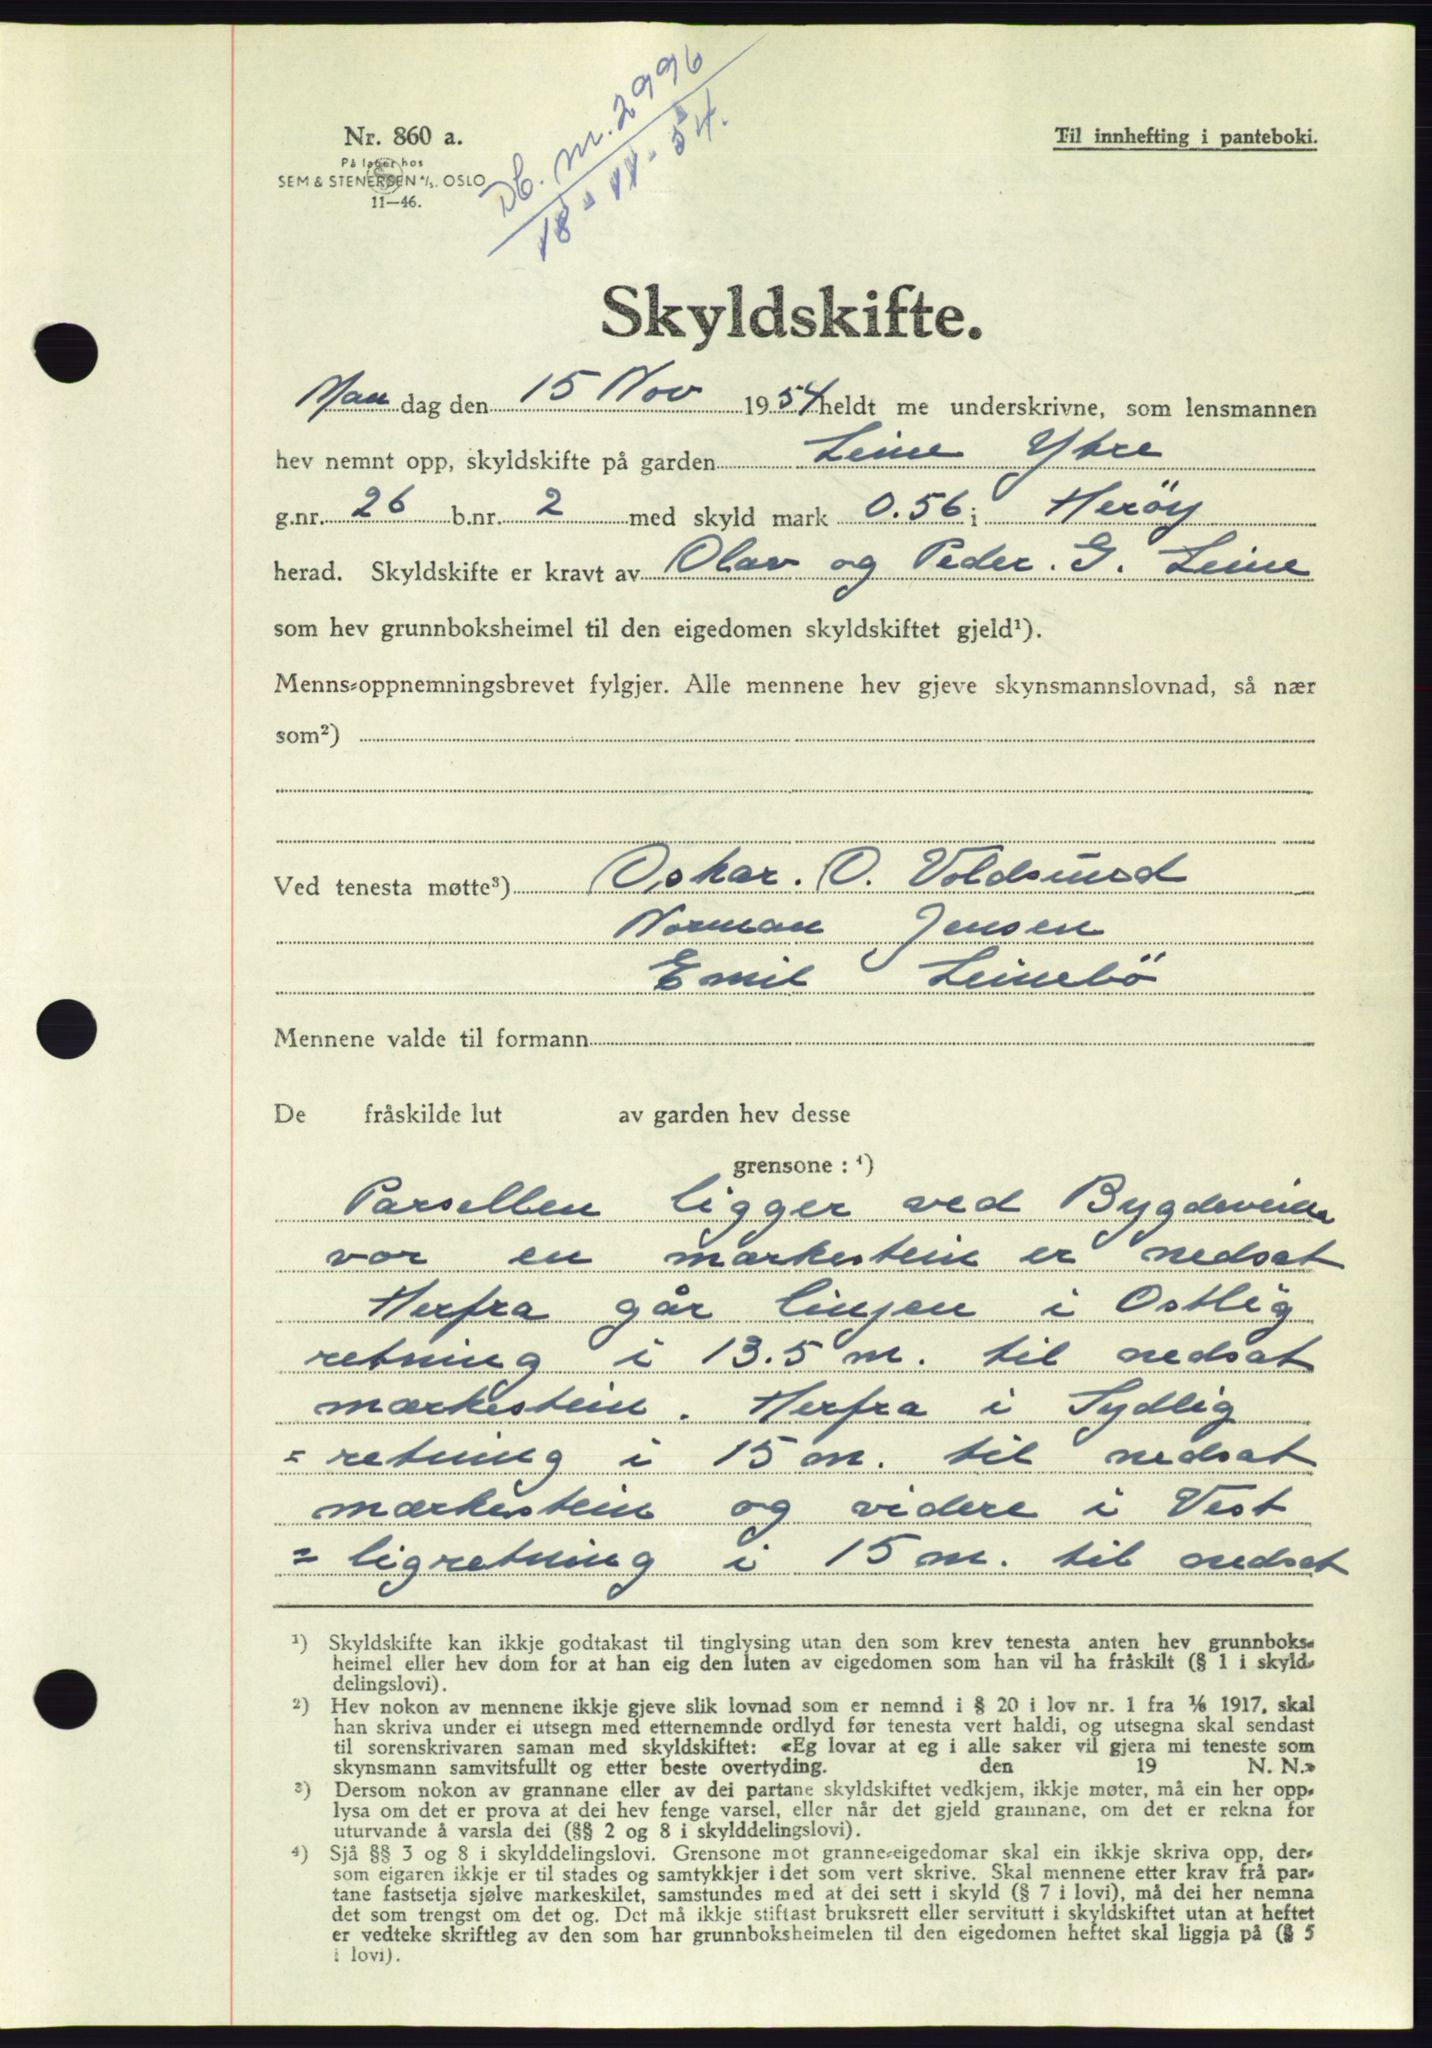 Db. nr. 2996
18-11-54.
Nr. 860 a.
Til innhefting i panteboki.
På lager hos
SEM & STENERSEN A/S. OSLO
11—46.
Skyldskifte.
Mandag den 15 Nov 1954 heldt me underskrivne, som lensmannen
hev nemnt opp, skyldskifte på garden Leine Ytre
g.nr. 26 b.nr. 2 med skyld mark 0.56 i Herøy
herad. Skyldskifte er kravt av Olav og Peder. G. Leine
som hev grunnboksheimel til den eigedomen skyldskiftet gjeld¹).
Menns-oppnemningsbrevet fylgjer. Alle mennene hev gjeve skynsmannslovnad, så nær
som²)
Ved tenesta møtte³) Oskar. O. Voldsund
Norman Jensen
Emil Leinebö
Mennene valde til formann
De fråskilde lut av garden hev desse
grensone: ⁴)
Parsellen ligger ved Bygdeveien
vor en merkestein er nedsat
Herfra går linjen i Ostlig
retning i 13.5 m. til nedsat
merkestein. Herfra i Sydlig
= retning i 15 m. til nedsat
merkestein og videre i Vest
= ligretning i 15 m. til nedsat
¹) Skyldskifte kan ikkje godtakast til tinglysing utan den som krev tenesta anten hev grunnboks-
heimel eller hev dom for at han eig den luten av eigedomen som han vil ha fråskilt (§ 1 i skyld-
delingslovi).
²) Hev nokon av mennene ikkje gjeve slik lovnad som er nemnd i § 20 i lov nr. 1 fra 1/6 1917, skal
han skriva under ei utsegn med etternemnde ordlyd før tenesta vert haldi, og utsegna skal sendast
til sorenskrivaren saman med skyldskiftet: «Eg lovar at eg i alle saker vil gjera mi teneste som
skynsmann samvitsfullt og etter beste overtyding. den 19 N. N.»
³) Dersom nokon av grannane eller av dei partane skyldskiftet vedkjem, ikkje møter, må ein her opp-
lysa om det er prova at dei hev fenge varsel, eller når det gjeld grannane, om det er rekna for
uturvande å varsla dei (§§ 2 og 8 i skylddelingslovi).
⁴) Sjå §§ 3 og 8 i skylddelingslovi. Grensone mot granne-eigedomar skal ein ikkje skriva opp, der-
som eigaren ikkje er til stades og samtykkjer i det som vert skrive. Skal mennene etter krav frå par-
tane fastsetja sjølve markeskilet, samstundes med at dei sett i skyld (§ 7 i lovi), må dei her nemna
det som trengst om det og. Det må ikkje stiftast bruksrett eller servitutt i skyldskiftet utan at heftet
er vedteke skriftleg av den som har grunnboksheimelen til den eigedomen heftet skal liggja på (§ 5
i lovi).